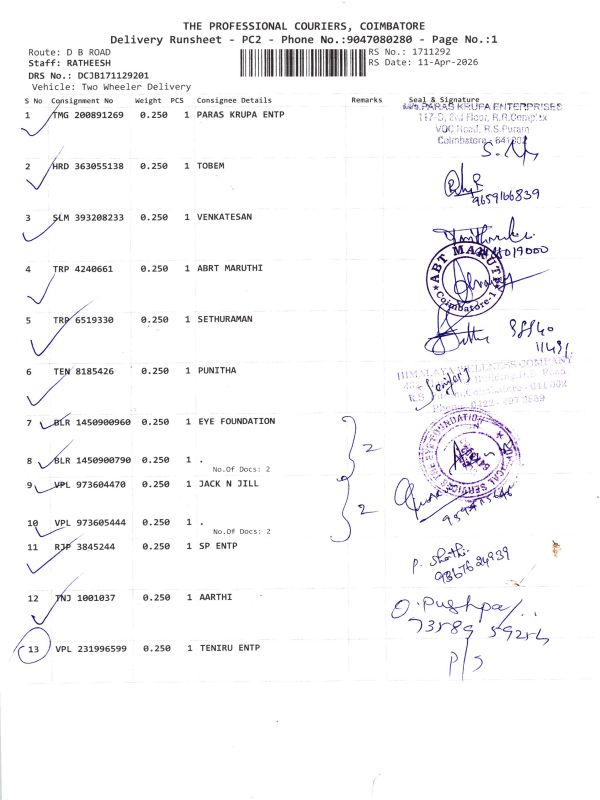 THE PROFESSIONAL COURIERS, COIMBATORE
Delivery Runsheet - PC2 - Phone No.:9047080280 - Page No.:1
Route: D B ROAD
RS No.: 1711292
Staff: RATHEESH
RS Date: 11-Apr-2026
DRS No.: DCJB171129201
Vehicle: Two Wheeler Delivery
S No Consignment No Weight PCS Consignee Details Remarks Seal & Signature
1 TMG 200891269 0.250 1 PARAS KRUPA ENTP
M/s.PARAS KRUPA ENTERPRISES
117-D, 3rd Floor, R.R.Complex
VOC Road, R.S.Puram
Coimbatore - 641002
2 HRD 363055138 0.250 1 TOBEM
9659166839
3 SLM 393208233 0.250 1 VENKATESAN
4 TRP 4240661 0.250 1 ABRT MARUTHI
ABT MARUTI
Coimbatore-1
5 TRP 6519330 0.250 1 SETHURAMAN
6 TEN 8185426 0.250 1 PUNITHA
HIMALAYA WELLNESS COMPANY
7 BLR 1450900960 0.250 1 EYE FOUNDATION
2
8 BLR 1450900790 0.250 1 .
No.Of Docs: 2
THE EYE FOUNDATION
9 VPL 973604470 0.250 1 JACK N JILL
2
10 VPL 973605444 0.250 1 .
No.Of Docs: 2
11 RJP 3845244 0.250 1 SP ENTP
12 TNJ 1001037 0.250 1 AARTHI
O.Pushpa
13 VPL 231996599 0.250 1 TENIRU ENTP
P/S